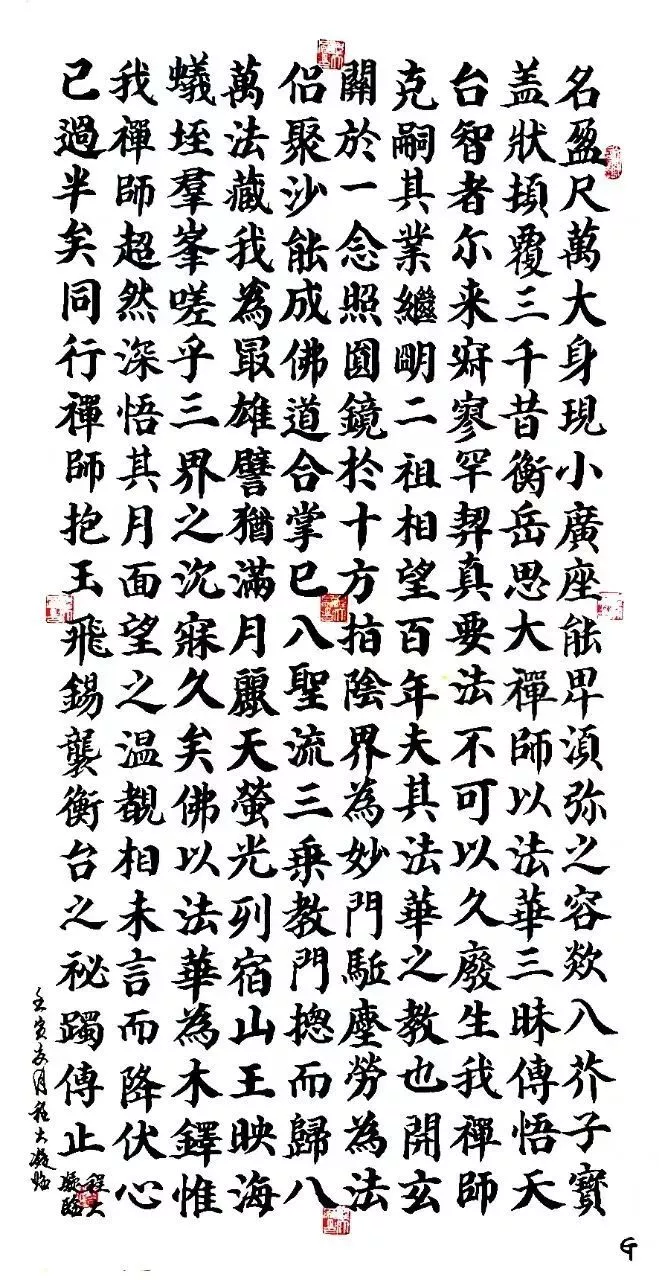 名盈尺萬大身現小廣座能卑湏弥之容欻入芥子寳
盖狀頓覆三千昔衡岳思大禪師以法華三昧傳悟天
台智者尔来寂寥罕契真要法不可以久廢生我禪師
克嗣其業繼明二祖相望百年夫其法華之教也開玄
關於一念照圓鏡於十方指陰界為妙門駈塵勞為法
侣聚沙能成佛道合掌已入聖流三乗教門揔而歸八
萬法藏我為最雄譬猶滿月麗天螢光列宿山王映海
蟻垤羣峯嗟乎三界之沉寐久矣佛以法華為木鐸惟
我禪師超然深悟其月面望之温覩相未言而降伏心
已過半矣同行禪師抱玉飛錫襲衡台之祕躅傳止
壬寅 月程大凝臨
程大
凝臨
G